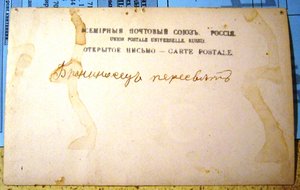 ВСЕМІРНЫЙ ПОЧТОВЫЙ СОЮЗЪ. РОССІЯ.
UNION POSTALE UNIVERSELLE. RUSSIE.
ОТКРЫТОЕ ПИСЬМО — CARTE POSTALE.
Броненосецъ пересвѣтъ